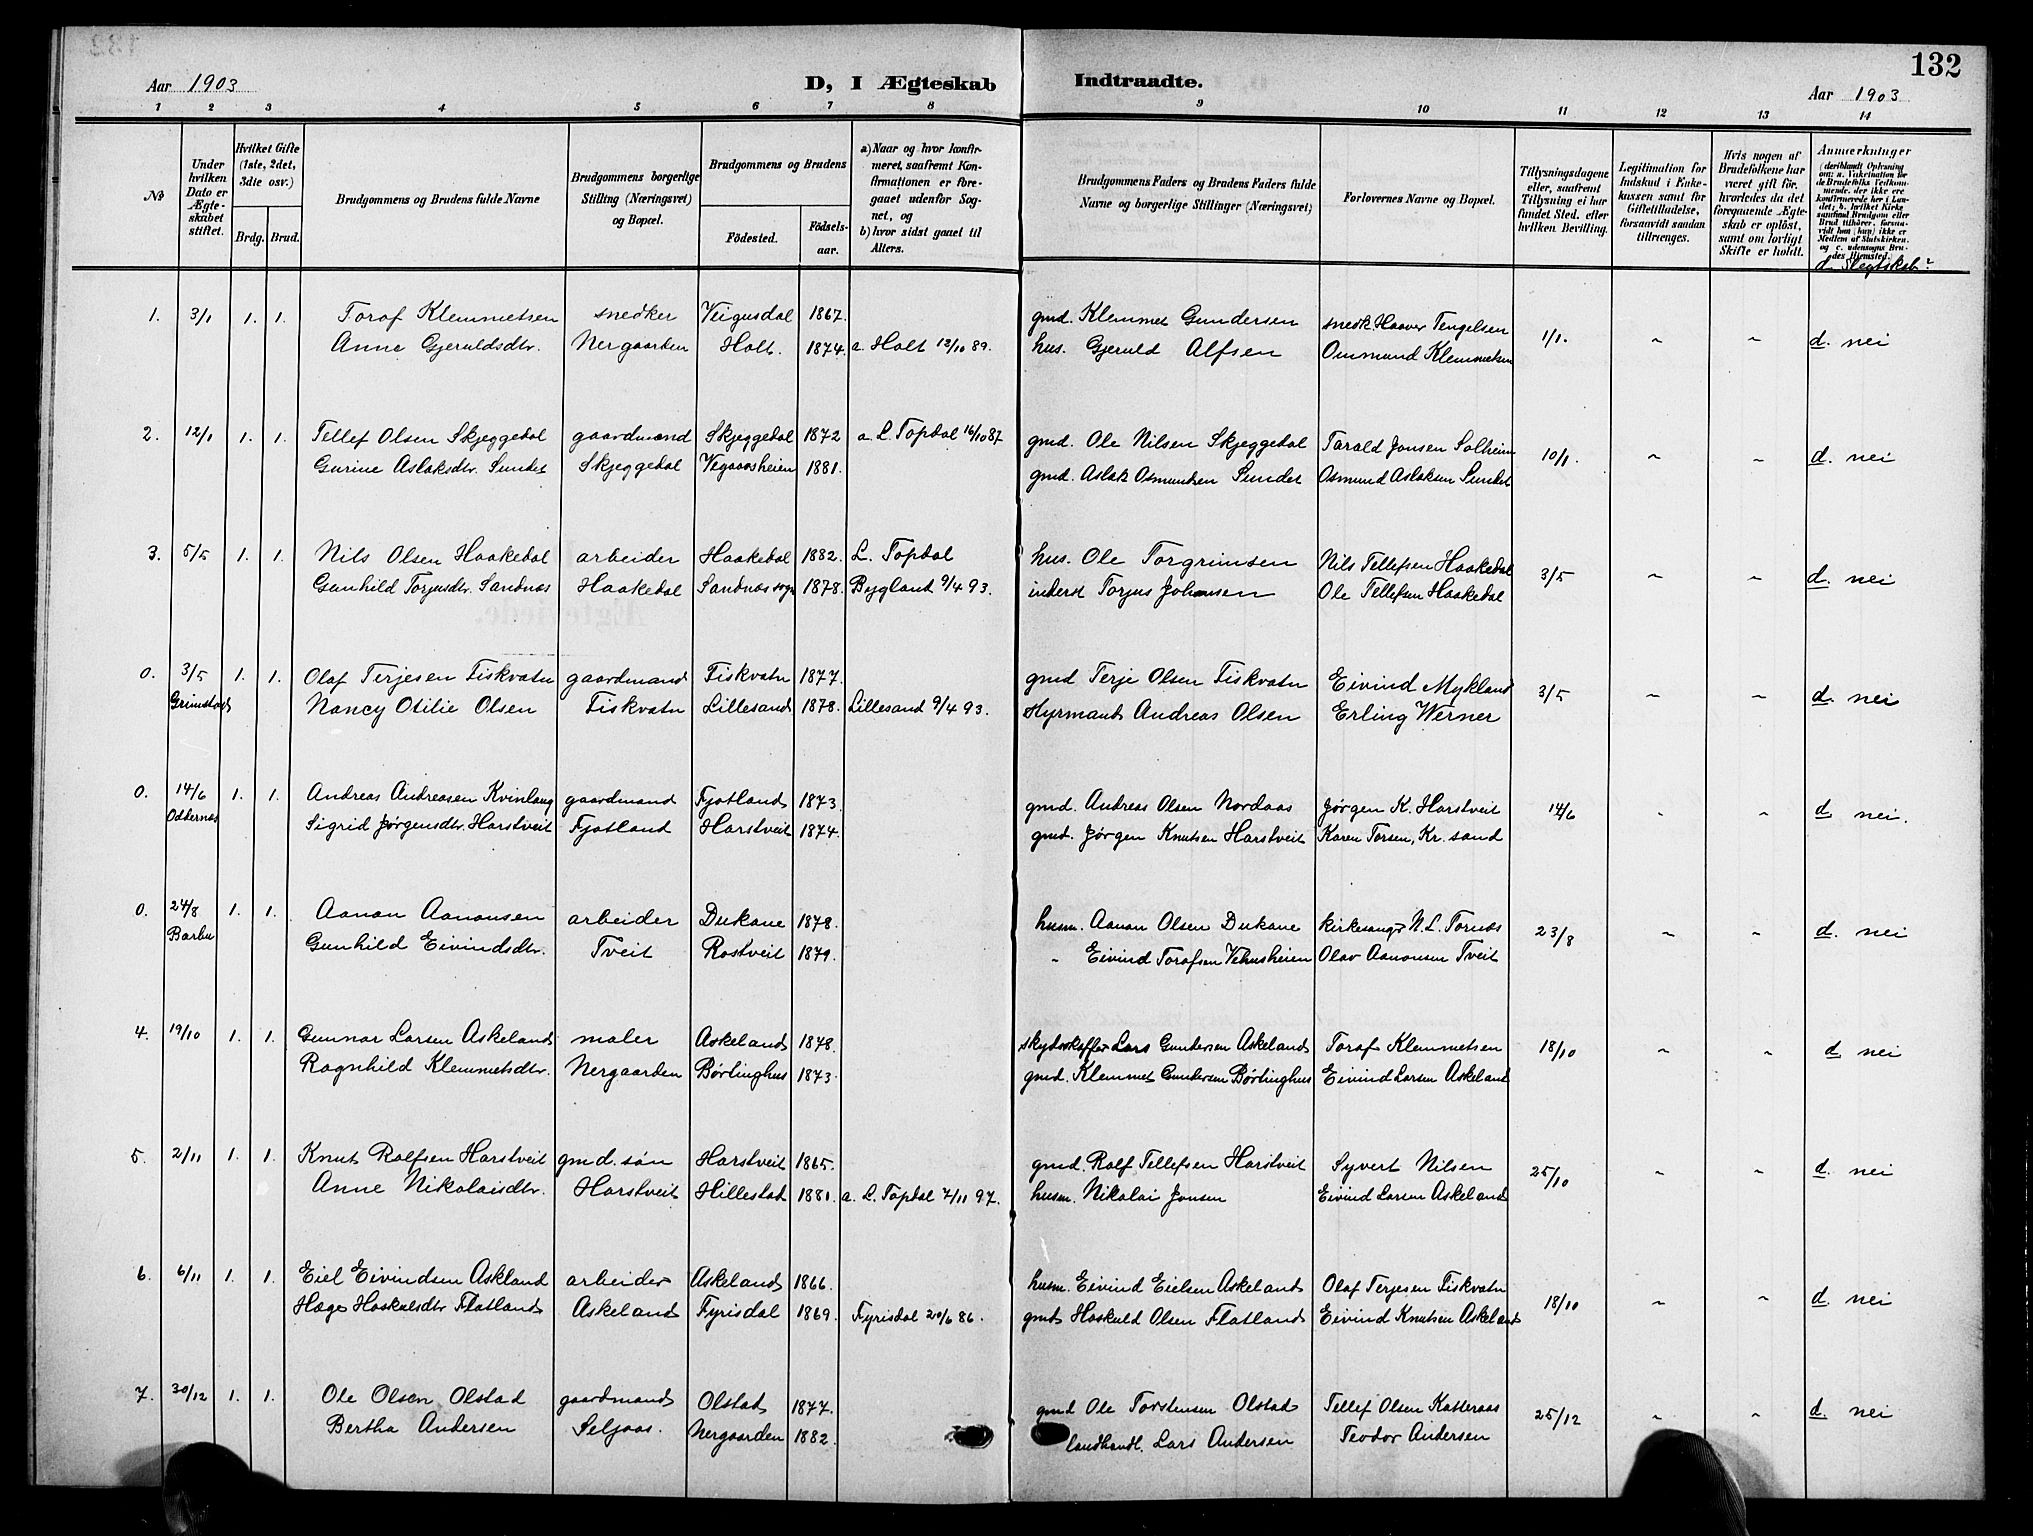 132
Aar 1903 D, I Ægteskab Indtraadte. Aar 1903
1 2 3 4 5 6 7 8 9 10 11 12 13 14
No
Under hvilken Dato er Ægteskabet stiftet.
Hvilket Gifte (1ste, 2det, 3die osv.)
Brdg. Brud.
Brudgommens og Brudens fulde Navne
Brudgommens borgerlige Stilling (Næringsvei) og Bopæl.
Brudgommens og Brudens
Födested. Födselsaar.
a) Naar og hvor konfirmeret, saafremt Konfirmationen er foregaaet udenfor Sognet, og
b) hvor sidst gaaet til Alters.
Brudgommens Faders og Brudens Faders fulde Navne og borgerlige Stillinger (Næringsvei)
Forlovernes Navne og Bopæl.
Tillysningsdagene eller, saafremt Tillysning ei har fundet Sted, efter hvilken Bevilling.
Legitimation for Indskud i Enkekassen samt for Giftetilladelse, forsaavidt saadan tiltrænges.
Hvis nogen af Brudefolkene har været gift før, hvorledes da det foregaaende Ægteskab er oplöst, samt om lovligt Skifte er holdt.
Anmærkninger
d. Slegtskab?
1. 3/1 1. 1. Toraf Klemmetsen snedker Veigusdal 1867. gmd. Klemmet Gundersen snedk. Haaver Tengelsen 1/1. " " d. nei
Anne Gjeruldsdtr. Nergaarden Holt. 1874. a. Holt 13/10 89. hus. Gjeruld Alfsen Ommund Klemmetsen
2. 12/1 1. 1. Tellef Olsen Skjeggedal gaardmand Skjeggedal 1872 a. L. Topdal 16/10 87 gmd. Ole Nilsen Skjeggedal Tarald Jonsen Solheim 10/1. " " d. nei
Gurine Aslaksdtr. Sundet Skjeggedal Vegaarsheien 1881. gmd. Aslak Osmundsen Sundet Osmund Aslaksen Sundet
3. 5/5 1. 1. Nils Olsen Haakedal arbeider Haakedal 1882. L. Topdal hus. Ole Torgrimsen Nils Tellefsen Haakedal 3/5 " " d. nei
Gunhild Torjusdtr. Sandnæs Haakedal Sandnæs sogn 1878. Bygland 9/4 93. inderst Torjus Johansen Ole Tellefsen Haakedal
0. 3/5 1. 1. Olaf Terjesen Fiskvatn gaardmand Fiskvatn 1877. gmd Terje Olsen Fiskvatn Eivind Mykland 3/5 " " d. nei
Grimstad Nancy Otilie Olsen Fiskvatn Lillesand 1878. Lillesand 9/4 93. Styrmand Andreas Olsen Erling Werner
0. 14/6 1. 1. Andreas Andreasen Kvinlaug gaardmand Fjotland 1873. gmd. Andreas Olsen Nordaas Jørgen K. Harstveit 14/6 " " d. nei.
Oddernes Sigrid Jørgensdtr. Harstveit Fjotland Harstveit 1874. gmd. Jørgen Knutsen Harstveit Karen Torsen, Kr. sand
0. 24/8 1. 1. Aanon Aanonsen arbeider Dukane 1878. husm. Aanon Olsen Dukane kirkesanger N. L. Tornæs 23/8 " " d. nei
Barbu Gunhild Eivindsdtr. Tveit Rostveit 1879. " Eivind Torafsen Vehusheien Olav Aanonsen Tveit
4. 19/10 1. 1. Gunnar Larsen Askeland maler Askeland 1878. skydsskaffer Lars Gundersen Askeland Toraf Klemmetsen 18/10 " " d nei
Ragnhild Klemmetsdtr. Nergaarden Børtinghus 1873. gmd. Klemmet Gundersen Børtinghus Eivind Larsen Askeland
5. 2/11 1. 1. Knut Rolfsen Harstveit gmd. søn Harstveit 1865. gmd. Rolf Tellefsen Harstveit Syvert Nilsen 25/10 " " d. nei
Anne Nikolaisdtr. Harstveit Hillestad 1881. a. L. Topdal 7/11 97. husm. Nikolai Jonsen Eivind Larsen Askeland
6. 6/11 1. 1. Eiel Eivindsen Askland arbeider Askeland 1866. husm. Eivind Eielsen Askeland Olaf Terjesen Fiskvatn 18/10 " " d. nei
Hæge Haskuldsdtr Flatland Askeland Fyrisdal 1869. Fyrisdal 20/6 86. gmd Haskuld Olsen Flatland Eivind Knutsen Askeland
7. 30/12 1. 1. Ole Olsen Olstad gaardmand Olstad 1877. gmd Ole Torstensen Olstad Tellef Olsen Katteraas 25/12 " " d. nei
Bertha Andersen Seljaas. Nergaarden 1882. landhandl. Lars Andersen Teodor Andersen